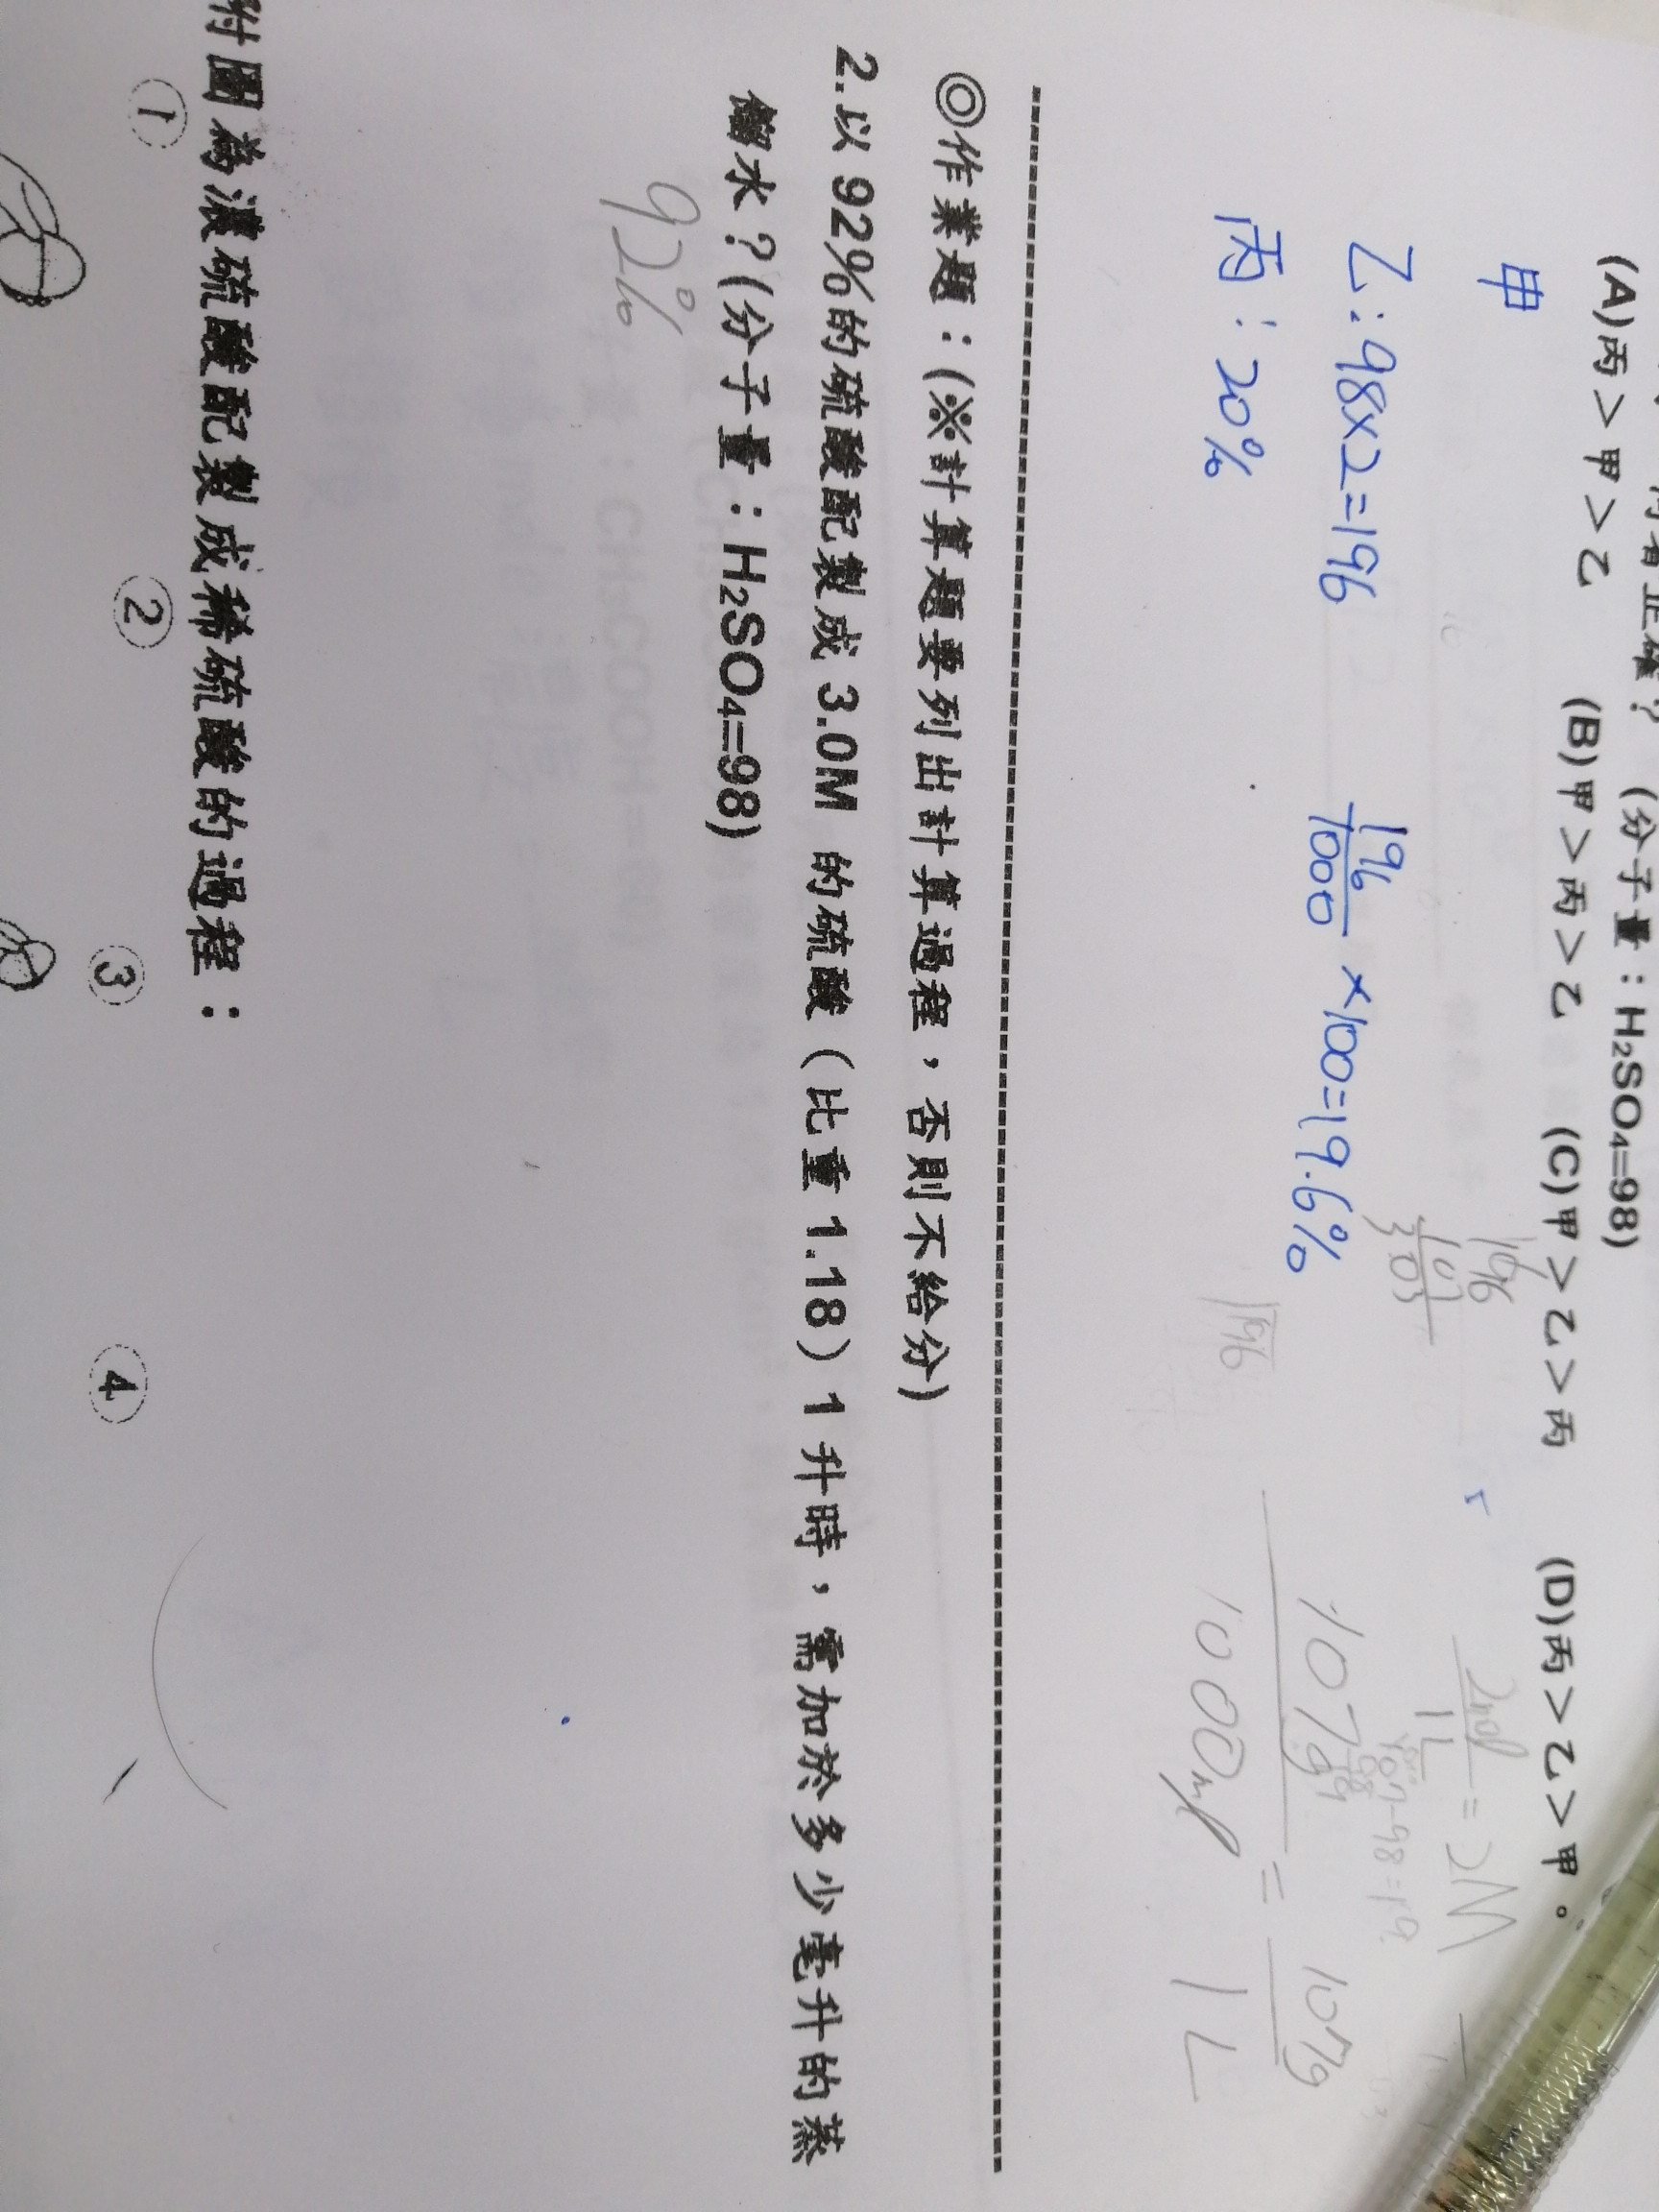 正確？ (分子量：H₂SO₄=98)
(A)丙＞甲＞乙 (B)甲＞丙＞乙 (C)甲＞乙＞丙 (D)丙＞乙＞甲。
甲
乙：98×2=196 196/1000 ×100=19.6%
丙：20%
196
2mol/1L = 2M
1079/1000ml = 1079/1L
196
◎作業題：(※計算題要列出計算過程，否則不給分)
2.以 92%的硫酸配製成 3.0M 的硫酸（比重 1.18）1 升時，需加於多少毫升的蒸
餾水？(分子量：H₂SO₄=98)
92%
附圖為濃硫酸配製成稀硫酸的過程：
① ② ③ ④